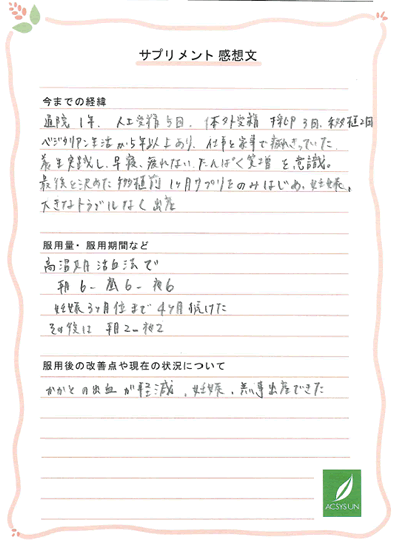 サプリメント 感想文
今までの経緯
通院1年、人工受精5回、体外受精 採卵3回、移植2回
ベジタリアン生活が5年以上あり、仕事と家事で疲れきっていた
養生実践し、早寝、疲れない、たんぱく質増を意識。
最後と決めた移植前1ヶ月サプリをのみはじめ、妊娠、
大きなトラブルなく出産
服用量・服用期間など
法で
朝6-昼6-夜6
妊娠3ヶ月位まで4ヶ月続けた
その後は 朝2-夜2
服用後の改善点や現在の状況について
かかとの出血が軽減、妊娠、無事出産できた
ACSYSUN